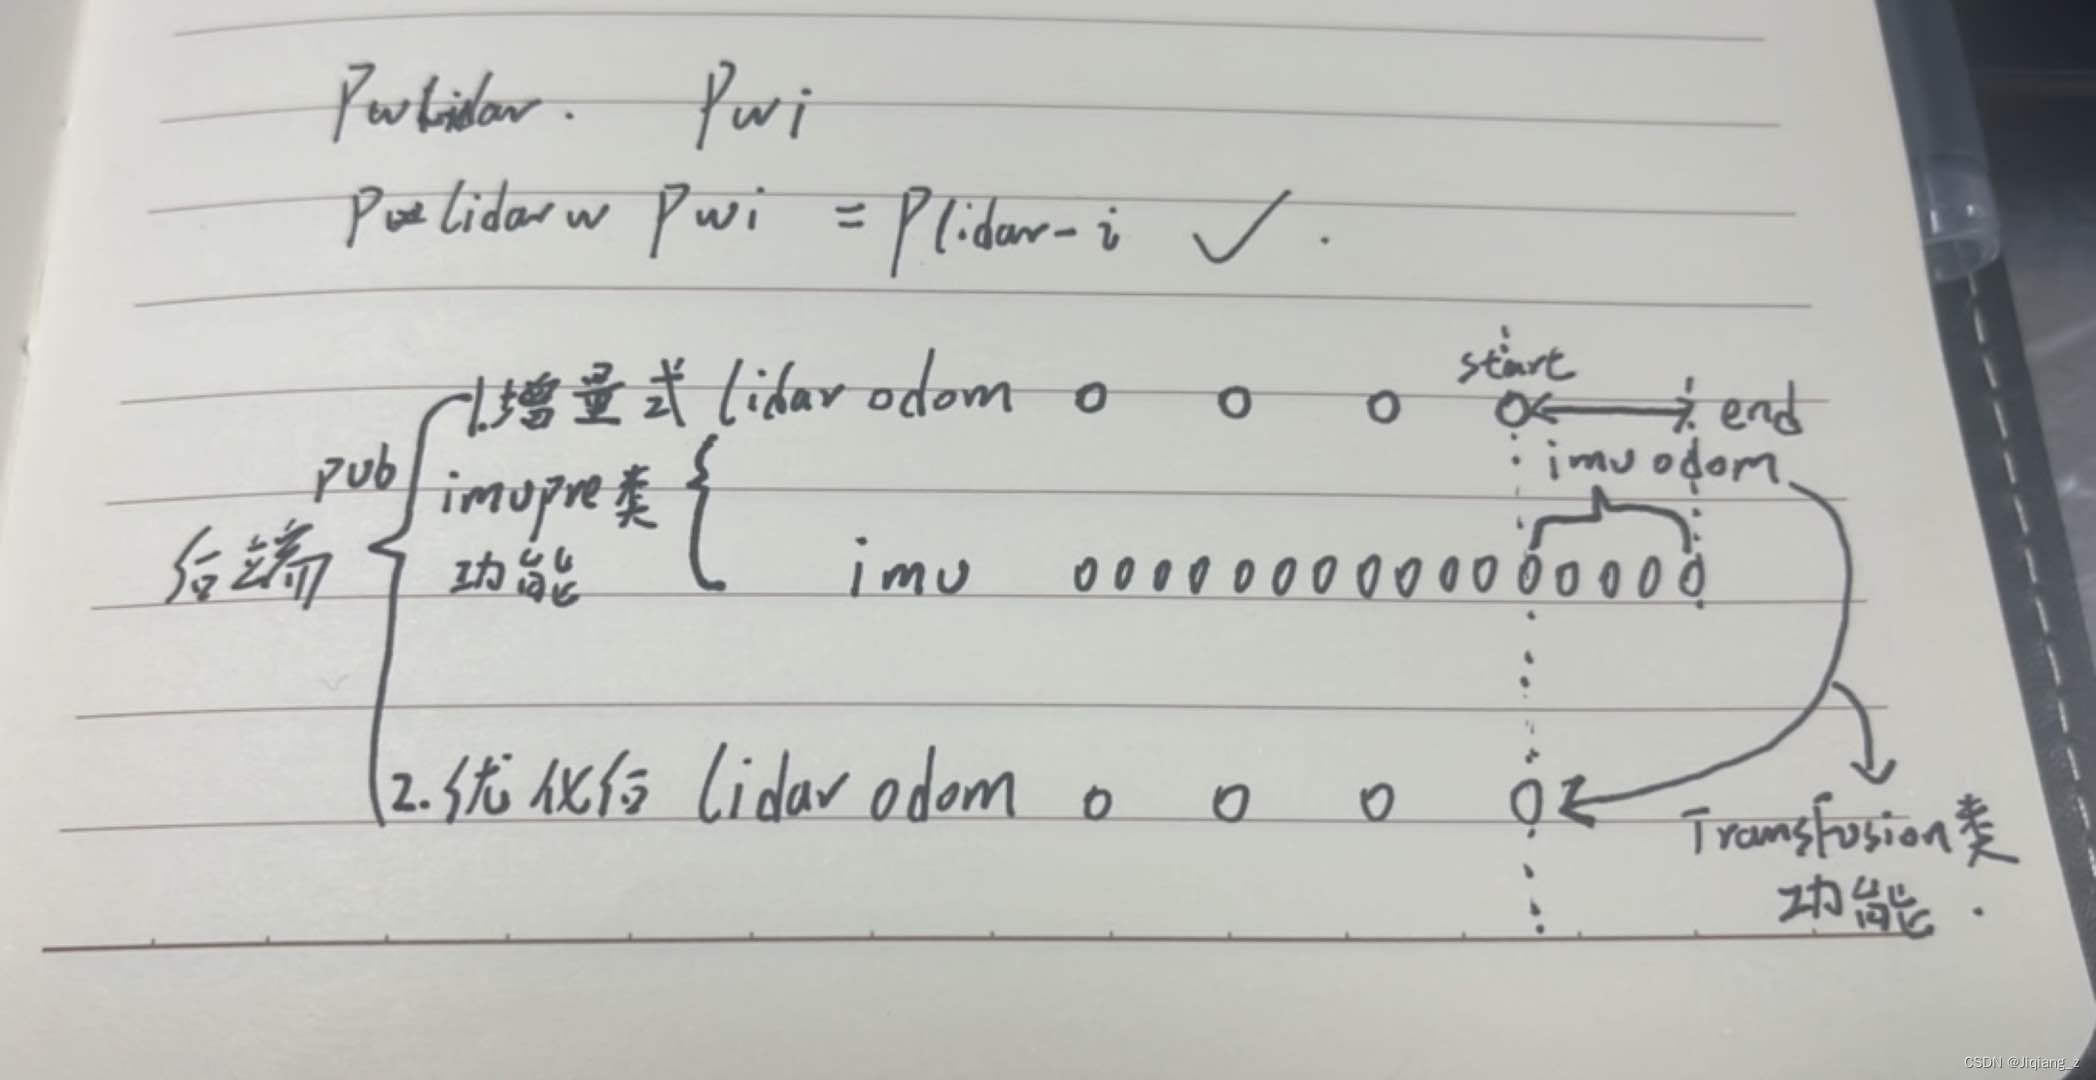 Pwlidar. Pwi
Plidarw Pwi = Plidar-i ✓.
start
1.增量式 lidar odom o o o o end
pub imupre类 imu odom
后端 功能 imu 0 0 0 0 0 0 0 0 0 0 0 0 0 0 0 0
2.优化后 lidar odom o o o o
Transfusion类
功能.
CSDN @Jiqiang_z